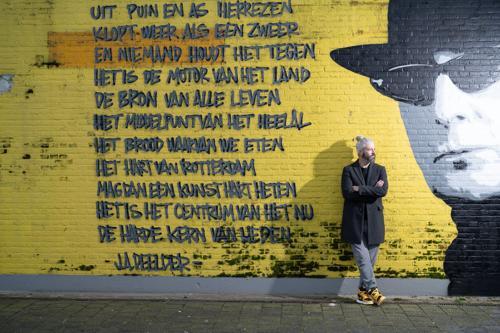 UIT PUIN EN AS HERREZEN
KLOPT WEER ALS EEN ZWEER
EN NIEMAND HOUDT HET TEGEN
HET IS DE MOTOR VAN HET LAND
DE BRON VAN ALLE LEVEN
HET MIDDELPUNT VAN HET HEELAL
HET BROOD WAARVAN WE ETEN
HET HART VAN ROTTERDAM
MAG VAN EEN KUNSTHART HETEN
HET IS HET CENTRUM VAN HET NU
DE HARDE KERN VAN HEDEN
J.A. DEELDER